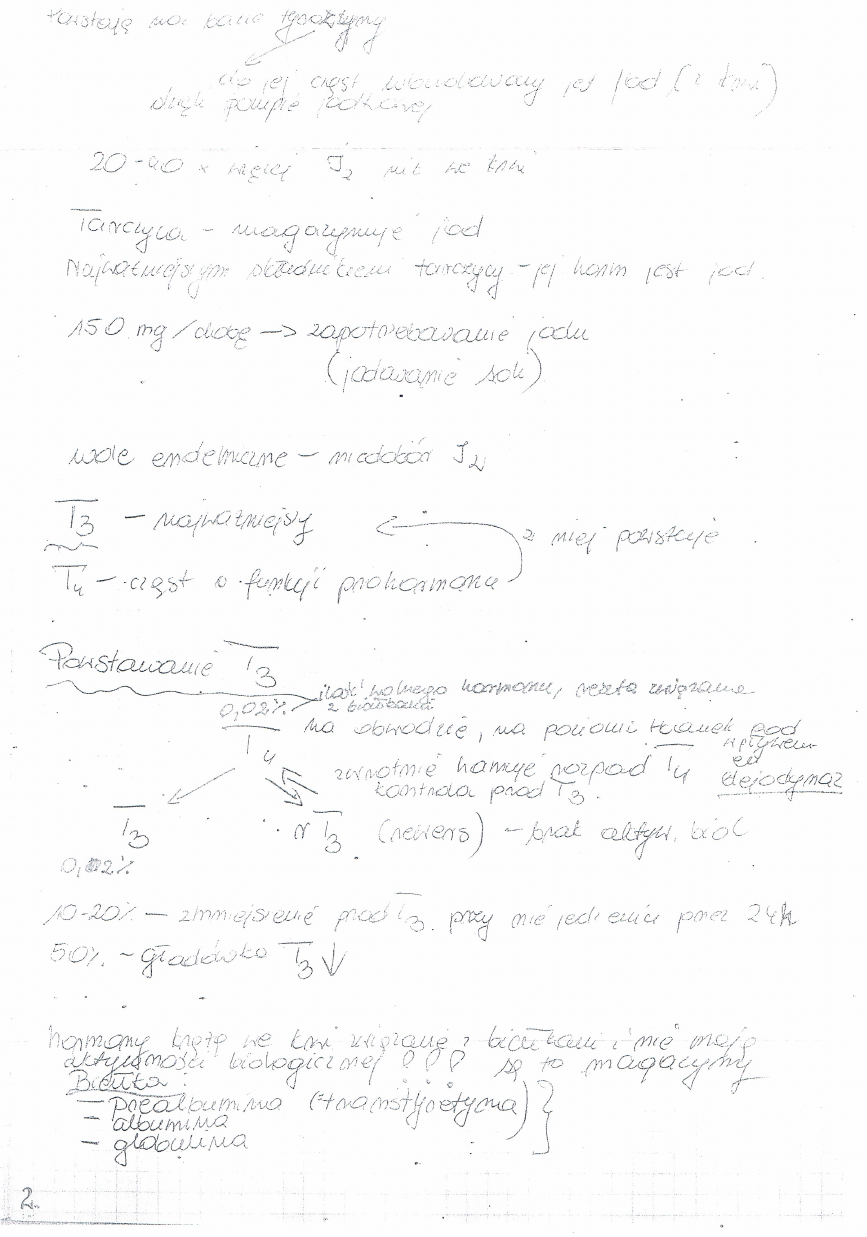 Powstają na bazie tyrozyny
do jej cząst wbudowany jest jod (z krwi)
dzięki pompie jodkowej
20-40 x więcej J2 niż we krwi
Tarczyca - magazynuje jod
Najważniejszym składnikiem tarczycy - jej horm jest jod.
150 mg/dobę -> zapotrzebowanie jodu
(jodowanie soli)
wole endemiczne - niedobór J2
T3 - najważniejszy
z niej powstaje
T4 - cząst o funkcji prohormonu
Powstawanie T3
ilość wolnego hormonu, reszta związana
0,02% z białkami
T4 na obwodzie, na poziomie tkanek pod
wpływem
zwrotnie hamuje rozpad T4 dejodynaz
kontrola prod T3.
T3 rT3 (rewers) - brak aktyw. biol
0,02%
10-20% - zmniejszenie prod T3 przy nie jedzeniu przez 24h
50% - głodówka T3 ↓
hormony krążą we krwi związane z białkami i nie mają
aktywności biologicznej !!! są to magazyny
Białka:
- prealbumina (transtyretyna)
- albumina
- globulina
2.